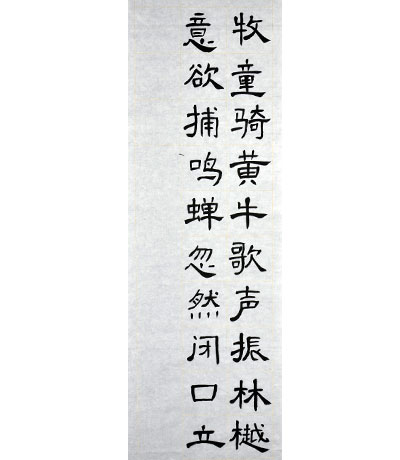 牧童骑黄牛歌声振林樾
意欲捕鸣蝉忽然闭口立